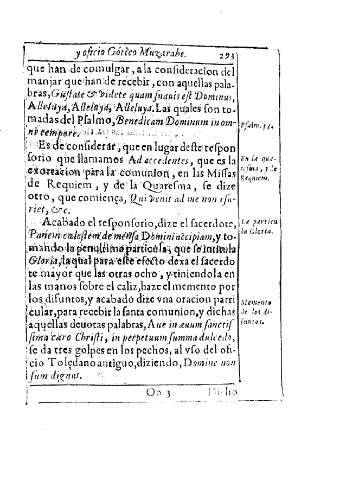 y oficio Gotico Muzarabe. 293
que han de comulgar, a la consideracion del
manjar que han de recebir, con aquellas pala-
bras, Gustate & videte quam suauis est Dominus,
Alleluya, Alleluya, Alleluya. Las quales son to-
madas del Psalmo, Benedicam Dominum in om-
ni tempore.
Psalm. 33.
Es de considerar, que en lugar deste respon
sorio que llamamos Ad accedentes, que es la
exortacion para la comunion, en las Missas
de Requiem, y de la Quaresma, se dize
otro, que comiença, Qui venit ad me non esu-
riet, &c.
En la qua-
resma, y de
Requiem.
Acabado el responsorio, dize el sacerdote,
Panem celestem de mensa Domini accipiam, y to-
mando la penultima particula, que se intitula
Gloria, la qual para este efecto dexa el sacerdo
te mayor que las otras ocho, y tiniendola en
las manos sobre el caliz, haze el memento por
los difuntos, y acabado dize vna oracion parti
cular, para recebir la santa comunion, y dichas
aquellas deuotas palabras, Aue in æuum sanctis
sima caro Christi, in perpetuum summa dulcedo,
se da tres golpes en los pechos, al vso del ofi-
cio Toledano antiguo, diziendo, Domine non
sum dignus.
La particu
la Gloria.
Memento
de los di-
funtos.
Oo 3 Dicho